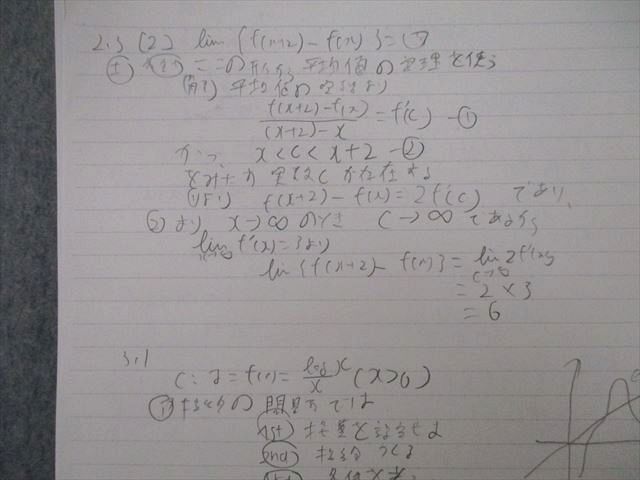 2.3 (2) lim {f(x+2) - f(x)} =
この形から平均値の定理を使う
(解) 平均値の定理より
f(x+2) - f(x) / (x+2) - x = f'(c) - ①
かつ x < c < x+2 - ②
をみたす実数 c が存在する
①より f(x+2) - f(x) = 2f'(c) であり、
②より x→∞ のとき c→∞ であるから
lim f'(x) = 3 より
lim {f(x+2) - f(x)} = lim 2f'(c)
= 2 × 3
= 6
3.1
C: y = f(x) = log x / x (x>0)
接線の問題では
1st 接点を設定せよ
2nd 接線